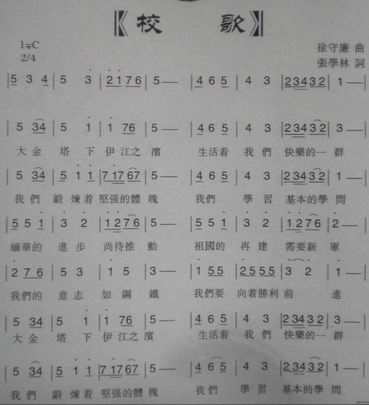 【校 歌】
1=C
徐守廉 曲
2/4
張學林 詞
| 5 3 4 | 5 3 | 2 1 7 6 | 5 — | 4 6 5 | 4 3 | 2 3 4 3 2 | 1 — |
| 5 34 | 5 1 | 1 76 | 5 — | 4 6 5 | 4 3 | 2 3 4 3 2 | 3 — |
大 金 塔 下 伊江之 濱 生活着 我 們 快樂的一 群
| 5 34 | 5 1 1 | 7 1 7 6 7 | 5 — | 4 6 5 | 4 3 | 2 3 4 3 2 | 1 — |
我 們 鍛 煉着 堅强的體 魄 我們 學 習 基本的學 問
| 5 5 1 | 3 2 | 1 2 7 6 | 5 — | 5 5 1 | 3 2 | 1 2 7 6 | 2 — |
緬華的 進 步 尚待推 動 祖國的 再 建 需要新 軍
| 2 7 6 | 5 3 | 1 5 | 3 — | 1 5 5 | 2 5 5 5 | 3 2 | 1 — |
我們的 意 志 如 鋼 鐵 我們要 向着勝利 前 進
| 5 34 | 5 1 | 1 76 | 5 — | 4 6 5 | 4 3 | 2 3 4 3 2 | 3 — |
大 金 塔 下 伊江之 濱 生活着 我 們 快樂的一 群
| 5 34 | 5 1 1 | 7 1 7 6 7 | 5 — | 4 6 5 | 4 3 | 2 3 4 3 2 | 1 — |
我 們 鍛 煉着 堅强的體 魄 我 們 學 習 基本的學 問